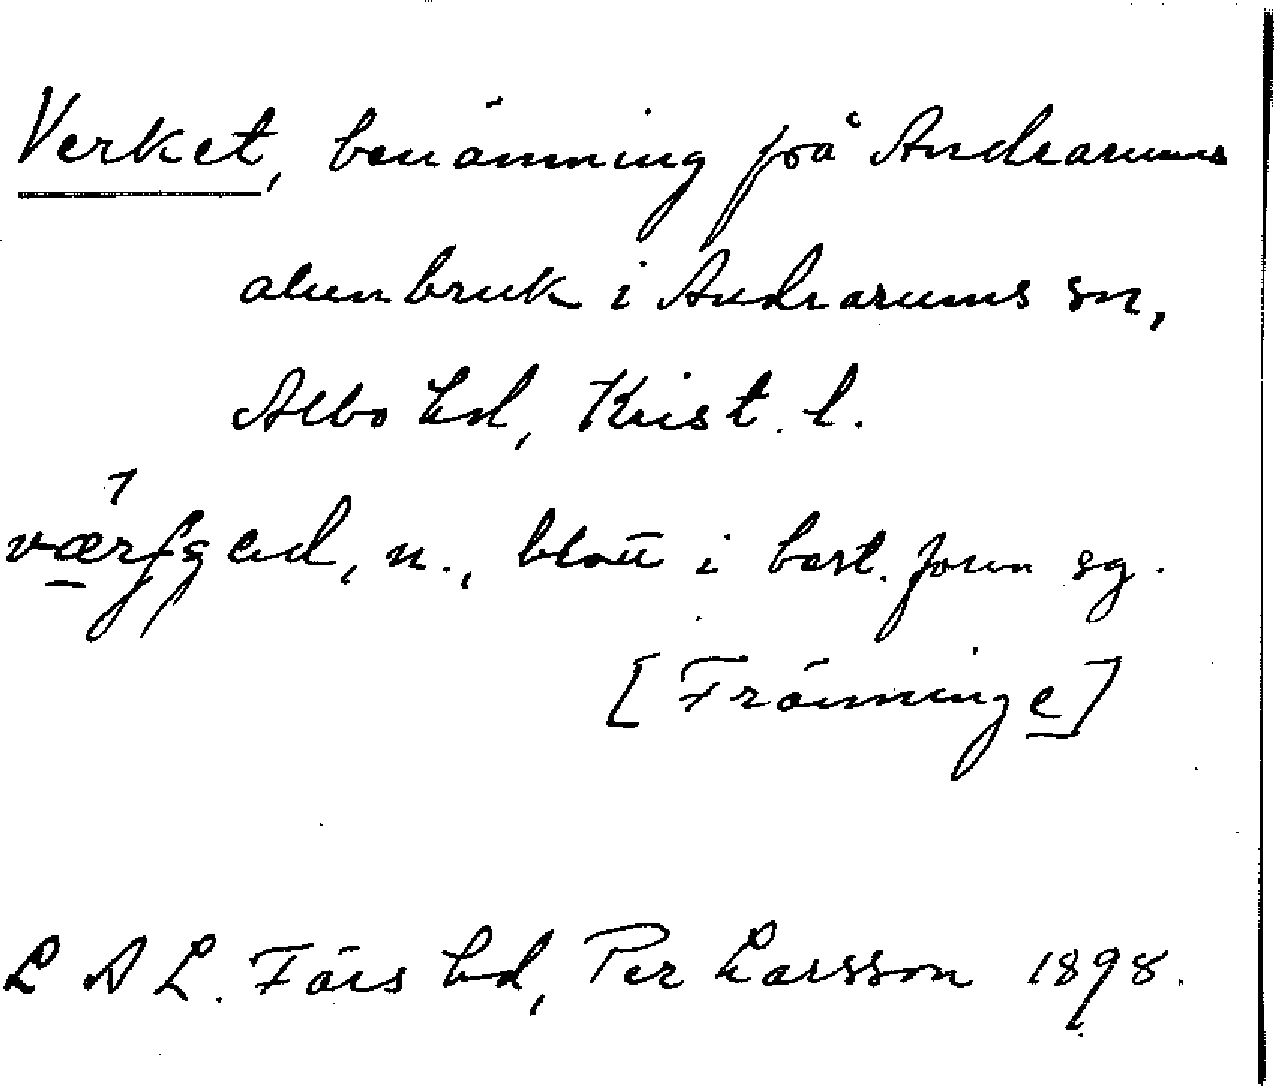 Verket, benämning på Andrarums
alunbruk i Andrarums sn,
Albo hd, Krist. l.
n., blott i best. form sg.
[Tränninge]
L A L. Färs hd, Per Larsson 1898.